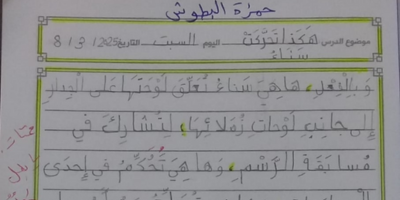 حمزة البطوش
موضوع الدرس هكذا تحركت اليوم السبت التاريخ 8/3/2025
سناء
وَبِالْفِعْلِ، هَا هِيَ سَنَاءُ تُعَلِّقُ لَوْحَتَهَا عَلَى الْجِدَارِ
إِلَى جَانِبِ لَوْحَاتِ زُمَلَائِهَا، لِتُشَارِكَ فِي
مُسَابَقَةِ الرَّسْمِ، وَهَا هِيَ تُحَكَّمُ فِي إِحْدَى